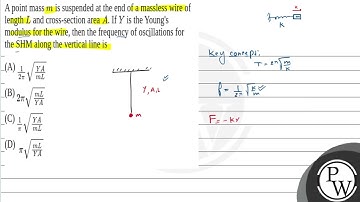 A point mass m is suspended at the end of a massless wire of
length L and cross-section area A. If Y is the Young's
modulus for the wire, then the frequency of oscillations for
the SHM along the vertical line is
(A) 1/2π √(YA/mL)
(B) 2π √(mL/YA)
(C) 1/π √(YA/mL)
(D) π √(mL/YA)
Y, A, L
m
m
K
Key concept:
T = 2π √(m/K)
f = 1/2π √(K/m)
F = -Kx
PW